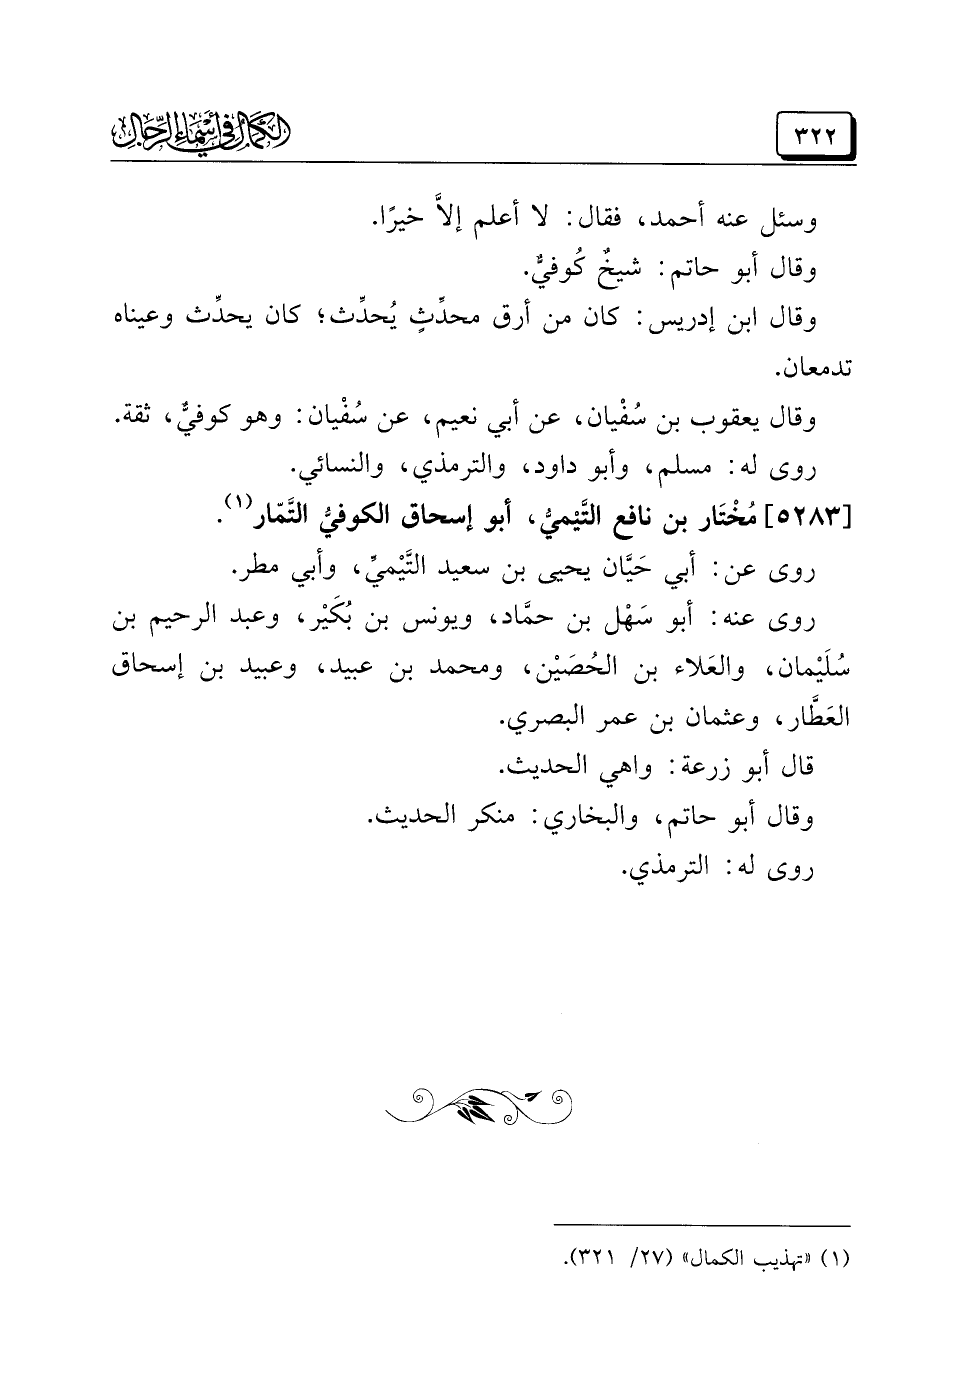 ٣٢٢
الكمال في أسماء الرجال
وسئل عنه أحمد، فقال: لا أعلم إلاَّ خيرًا.
وقال أبو حاتم: شيخٌ كُوفيٌّ.
وقال ابن إدريس: كان من أرق محدِّثٍ يُحدِّث؛ كان يحدِّث وعيناه
تدمعان.
وقال يعقوب بن سُفْيان، عن أبي نعيم، عن سُفْيان: وهو كوفيٌّ، ثقة.
روى له: مسلم، وأبو داود، والترمذي، والنسائي.
[٥٢٨٣] مُخْتَار بن نافع التَّيْميُّ، أبو إسحاق الكوفيُّ التَّمّار(١).
روى عن: أبي حَيَّان يحيى بن سعيد التَّيْميِّ، وأبي مطر.
روى عنه: أبو سَهْل بن حمَّاد، ويونس بن بُكَيْر، وعبد الرحيم بن
سُلَيْمان، والعَلاء بن الحُصَيْن، ومحمد بن عبيد، وعبيد بن إسحاق
العَطَّار، وعثمان بن عمر البصري.
قال أبو زرعة: واهي الحديث.
وقال أبو حاتم، والبخاري: منكر الحديث.
روى له: الترمذي.
(١) «تهذيب الكمال» (٢٧/ ٣٢١).